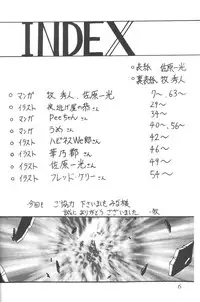 INDEX
○表紙 佐原一光
○裏表紙 牧 秀人
○マンガ 牧 秀人、佐原一光 7〜、63〜
○イラスト 夜逃げ屋の恭さん 29〜
○マンガ Peeちゃん 34〜
○マンガ うめさん 40〜、56〜
○イラスト ハピネスWe郎さん 42〜
○イラスト 華乃都さん 46〜
○イラスト 佐原一光さん 49〜
○イラスト フレッド・ケリーさん 54〜
今回も ご協力 下さいました みな様
誠に ありがとう ございました
牧
6